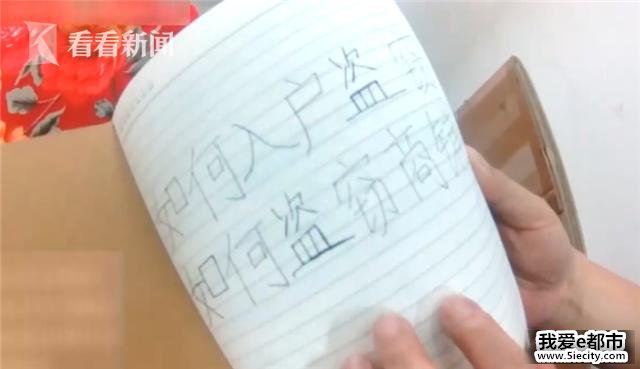 看看新闻
如何入户盗窃
如何盗窃商铺
我爱e都市
www.5iecity.com